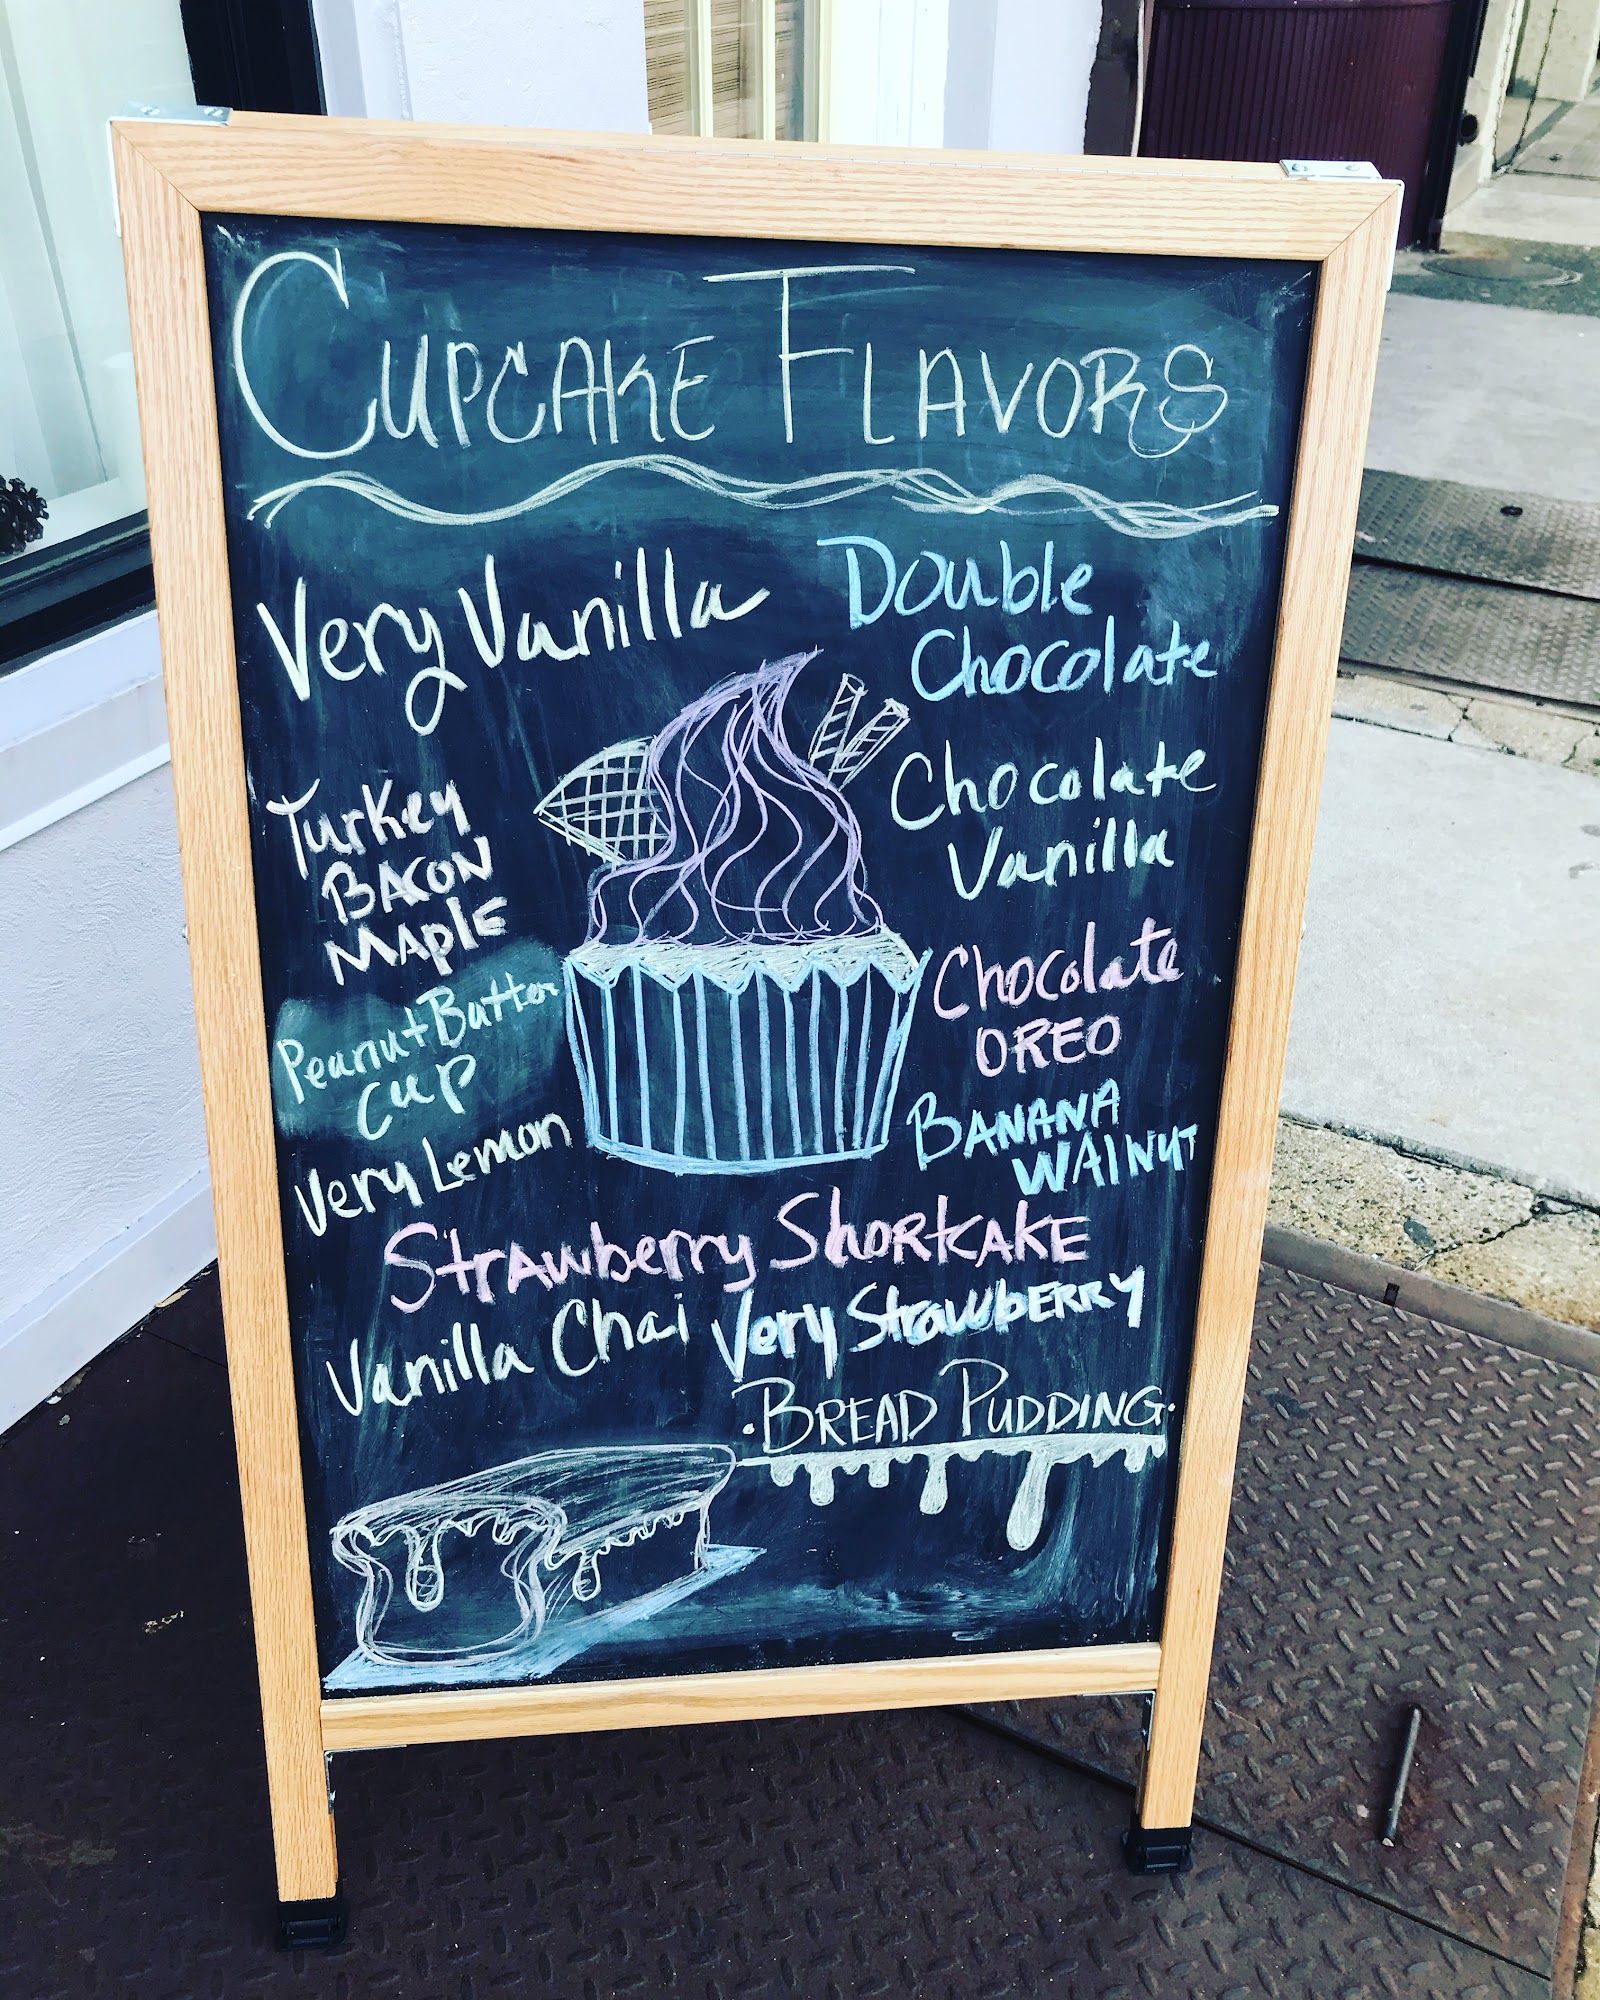 CUPCAKE FLAVORS
Very Vanilla
Double
Chocolate
Turkey
BACON
MAPlE
Chocolate
Vanilla
Peanut Butter
Cup
Chocolate
OREO
Very Lemon
BANANA
WAlNUT
Strawberry ShortCAKE
Vanilla Chai
Very StrawbERRY
·BREAD PUDDING·